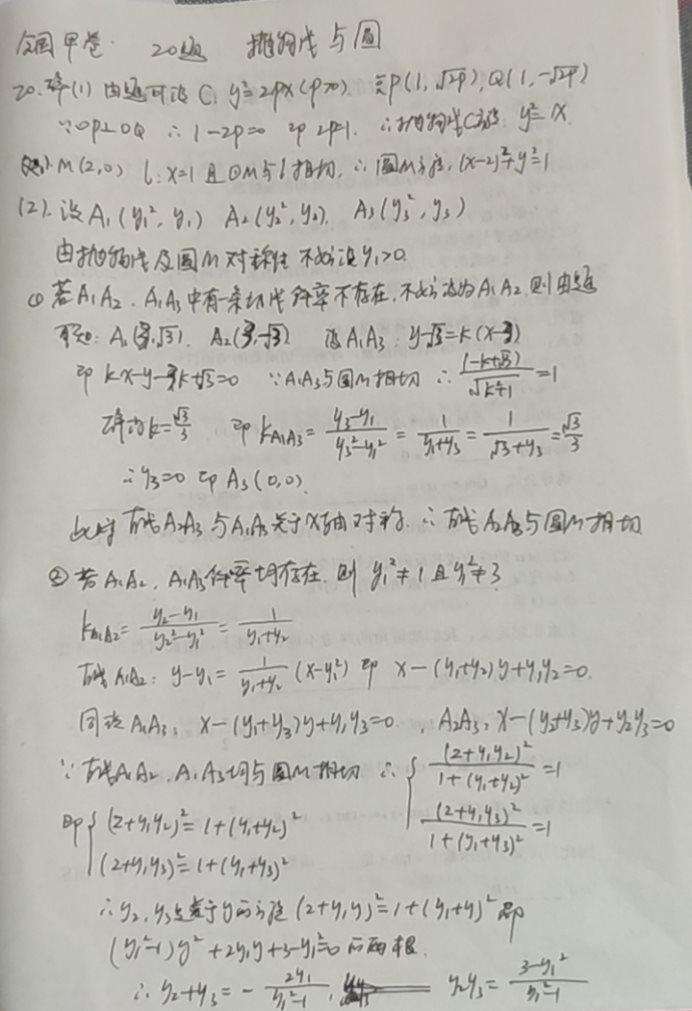 全国甲卷. 20题 抛物线与圆
20.解(1) 由题可设 C: y²=2px(p>0) P(1,√2p),Q(1,-√2p)
∵OP⊥OQ ∴ 1-2p=0 即 2p=1. ∴抛物线C方程: y²=x.
M(2,0) l:x=1 且⊙M与l相切, ∴圆M方程, (x-2)²+y²=1
(2). 设 A₁(y₁², y₁) A₂(y₂², y₂), A₃(y₃², y₃)
由抛物线及圆M对称性 不妨设y₁>0.
① 若A₁A₂、A₁A₃中有一条切线斜率不存在,不妨设为A₁A₂,则由题
可知: A₁(3,√3), A₂(3,-√3) 设A₁A₃: y-√3=k(x-3)
即 kx-y-3k+√3=0 ∵A₁A₃与圆M相切 ∴ |-k+√3|/√(k²+1) =1
解得k=√3/3 即 k_{A₁A₃}= (y₃-y₁)/(y₃²-y₁²) = 1/(y₁+y₃) = 1/(√3+y₃) = √3/3
∴y₃=0 即 A₃(0,0).
此时 直线A₂A₃与A₁A₃关于x轴对称. ∴直线A₂A₃与圆M相切
② 若A₁A₂, A₁A₃斜率均存在, 则 y₁²≠1 且 y₁²≠3
k_{A₁A₂}= (y₂-y₁)/(y₂²-y₁²) = 1/(y₁+y₂)
直线A₁A₂: y-y₁= 1/(y₁+y₂) (x-y₁²) 即 x-(y₁+y₂)y+y₁y₂=0.
同理A₁A₃: x-(y₁+y₃)y+y₁y₃=0 , A₂A₃: x-(y₂+y₃)y+y₂y₃=0
∵直线A₁A₂、A₁A₃均与圆M相切 ∴ { (2+y₁y₂)²/(1+(y₁+y₂)²) =1
(2+y₁y₃)²/(1+(y₁+y₃)²) =1
即{ (2+y₁y₂)²=1+(y₁+y₂)²
(2+y₁y₃)²=1+(y₁+y₃)²
∴y₂, y₃是关于y的方程 (2+y₁y)²=1+(y₁+y)² 即
(y₁²-1)y²+2y₁y+3-y₁²=0 的两根.
∴ y₂+y₃= - 2y₁/(y₁²-1), y₂y₃= (3-y₁²)/(y₁²-1)